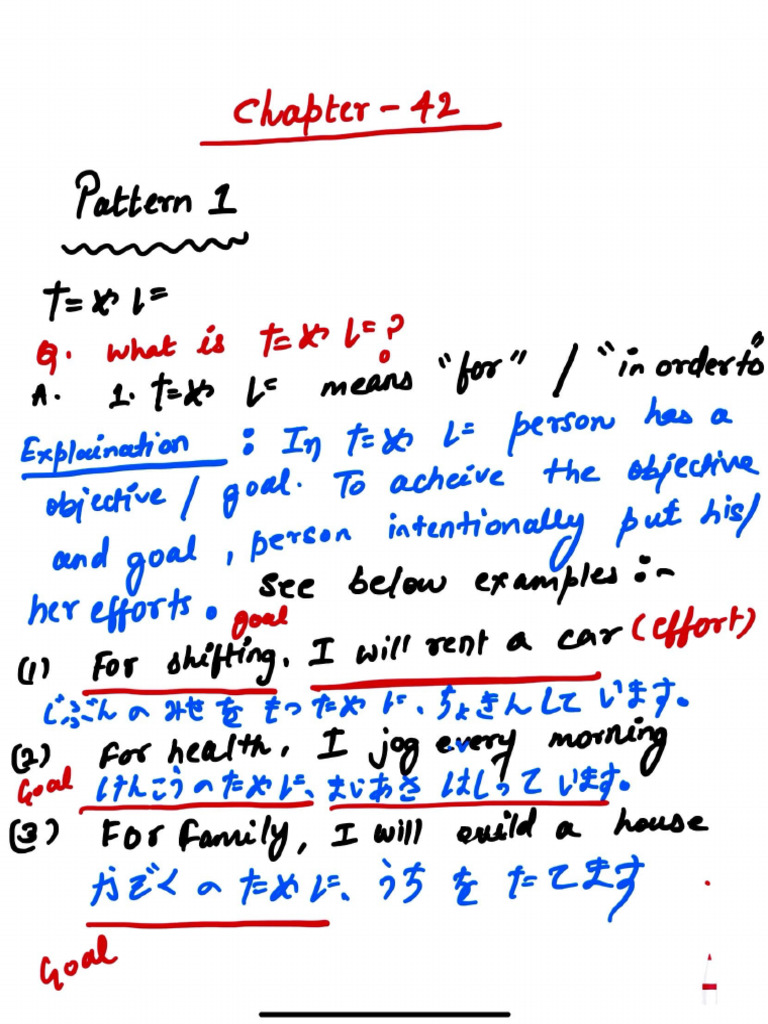 Chapter - 42
Pattern 1
ために
Q. What is ために?
A. 1. ために means "for" / "in order to"
Explaination : In ために person has a
objective / goal. To acheive the objective
and goal, person intentionally put his/
her efforts. See below examples :-
goal
(1) For shifting, I will rent a car (effort)
じぶんのみせをもつために、ちょきんしています。
(2) For health, I jog every morning
Goal けんこうのために、まいあさ はしっています。
(3) For family, I will build a house
かぞくのために、うちをたてます
Goal